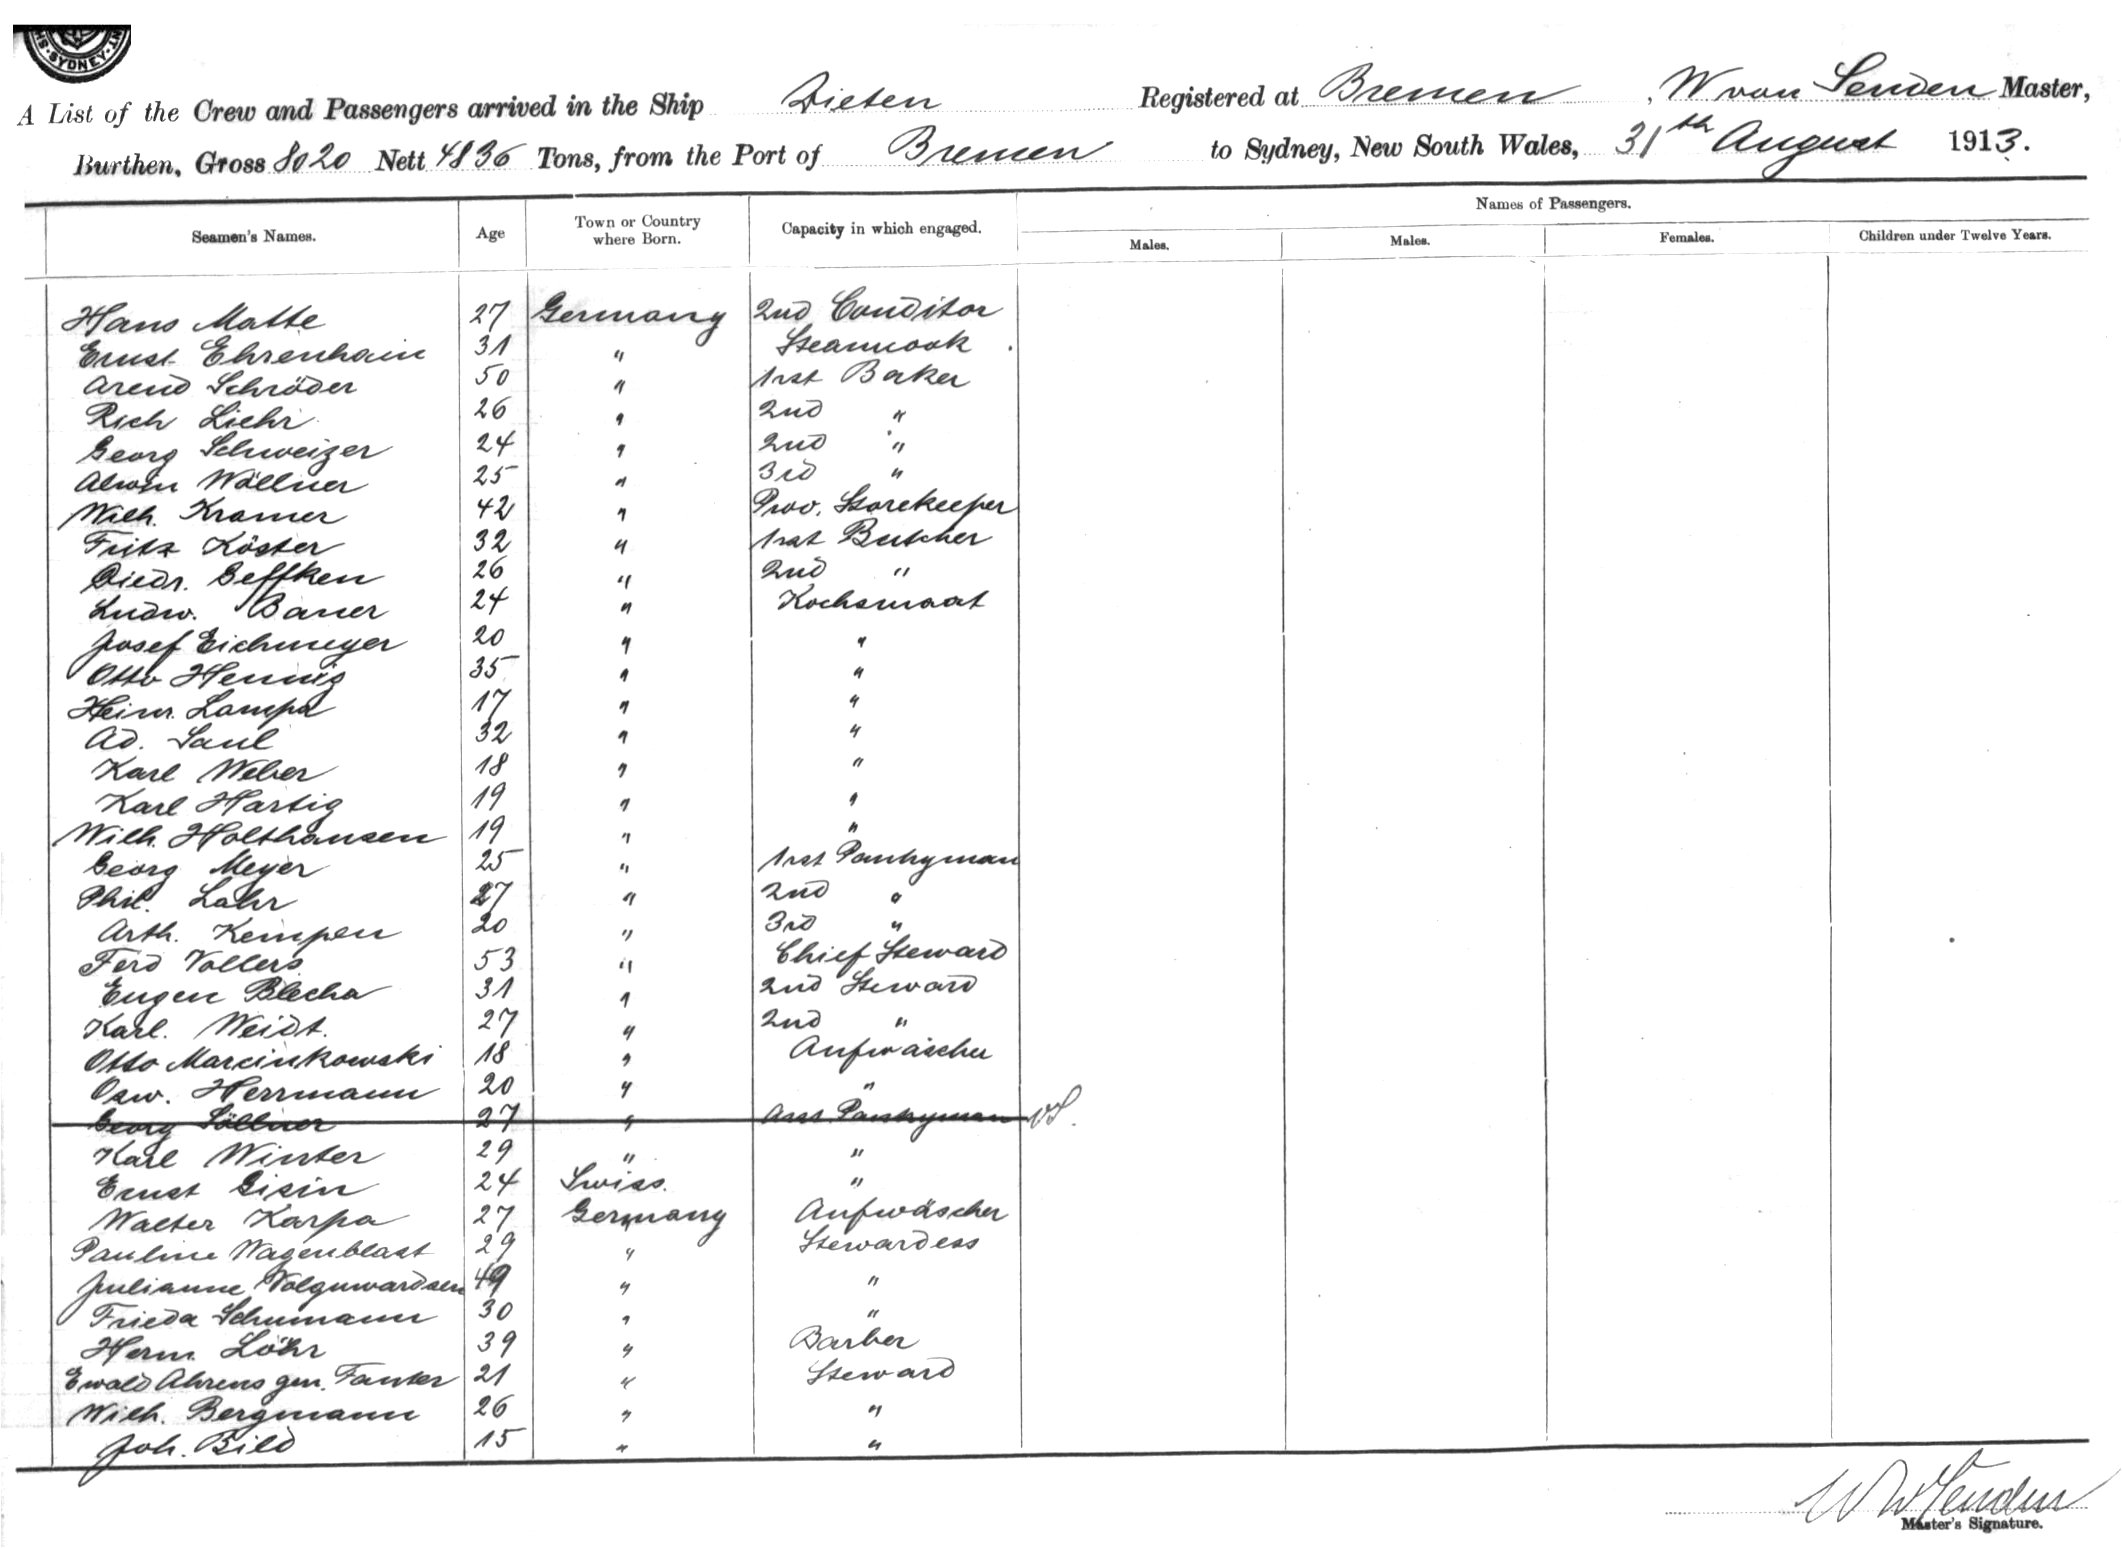 SYDNEY
A List of the Crew and Passengers arrived in the Ship Zieten Registered at Bremen, W von Senden Master,
Burthen, Gross 8020 Nett 4836 Tons, from the Port of Bremen to Sydney, New South Wales, 31th August 1913.
Seamen's Names. Age Town or Country where Born. Capacity in which engaged. Names of Passengers.
Males. Males. Females. Children under Twelve Years.
Hans Matte 27 Germany 2nd Conditor
Ernst Ehrenhain 31 " Steamcook
Arend Schröder 50 " 1rst Baker
Rich Liehr 26 " 2nd "
Georg Schweizer 24 " 2nd "
Alwin Wöllner 25 " 3rd "
Wilh. Kramer 42 " Prov. Storekeeper
Fritz Köster 32 " 1rst Butcher
Diedr. Geffken 26 " 2nd "
Ludw. Bauer 24 " Kochsmaat
Josef Eichmeyer 20 " "
Otto Hennig 35 " "
Heinr. Lampa 17 " "
Ad. Saul 32 " "
Karl Weber 18 " "
Karl Hartig 19 " "
Wilh. Holthausen 19 " "
Georg Meyer 25 " 1rst Pantryman
Phil. Lahr 27 " 2nd "
Arth. Kempen 20 " 3rd "
Ferd Vollers 53 " Chief Steward
Eugen Blecha 31 " 2nd Steward
Karl. Weidt. 27 " 2nd "
Otto Marcinkowski 18 " Aufwäscher
Osw. Herrmann 20 " "
Georg Söllner 27 " Asst Pantryman
Karl Winter 29 " "
Ernst Gisin 24 Swiss. "
Walter Karpa 27 Germany Aufwäscher
Pauline Wagenblast 29 " Stewardess
Julianne Volquwardsen 49 " "
Frieda Schumann 30 " "
Herm. Löhr 39 " Barber
Ewald Ahrens gen. Fanter 21 " Steward
Wilh. Bergmann 26 " "
Joh. Bild 15 " "
W v Senden
Master's Signature.